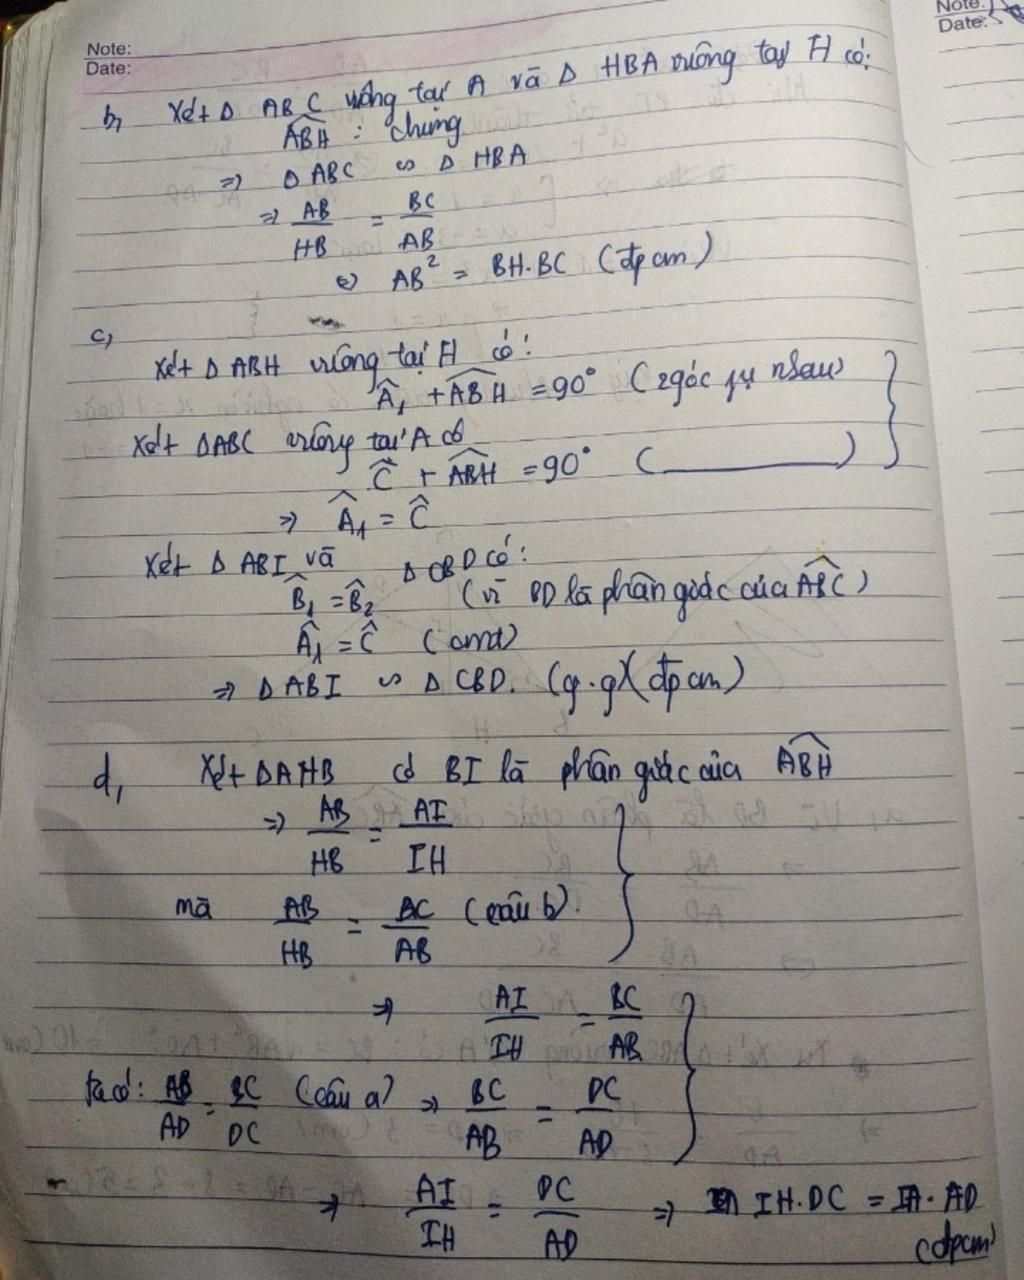 Note:
Date:
Note:
Date:
b, Xét Δ ABC vuông tại A và Δ HBA vuông tại H có:
ABH : chung
=> Δ ABC ∽ Δ HBA
=> AB/HB = BC/AB
<=> AB² = BH.BC (đpcm)
c,
Xét Δ ABH vuông tại H có:
Â₁ + ABH = 90° (2góc phụ nhau)
Xét ΔABC vuông tại A có
Ĉ + ABH = 90° (_______)
=> Â₁ = Ĉ
Xét Δ ABI và Δ CBD có:
B̂₁ = B̂₂ (vì BD là phân giác của ABC)
Â₁ = Ĉ (cmt)
=> Δ ABI ∽ Δ CBD. (g.g)(đpcm)
d, Xét ΔAHB có BI là phân giác của ABH
=> AB/HB = AI/IH
mà AB/HB = BC/AB (câu b).
=> AI/IH = BC/AB
Ta có: AB/AD = BC/DC (câu a) => BC/AB = DC/AD
=> AI/IH = DC/AD => IH.DC = IA.AD
(đpcm)